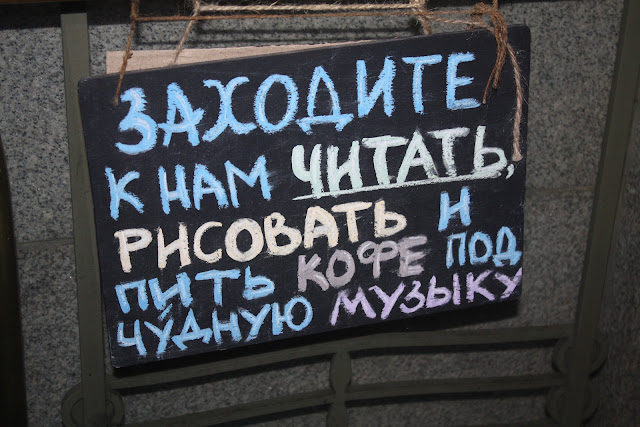 ЗАХОДИТЕ
К НАМ ЧИТАТЬ,
РИСОВАТЬ И
ПИТЬ КОФЕ ПОД
ЧУ́ДНУЮ МУЗЫКУ